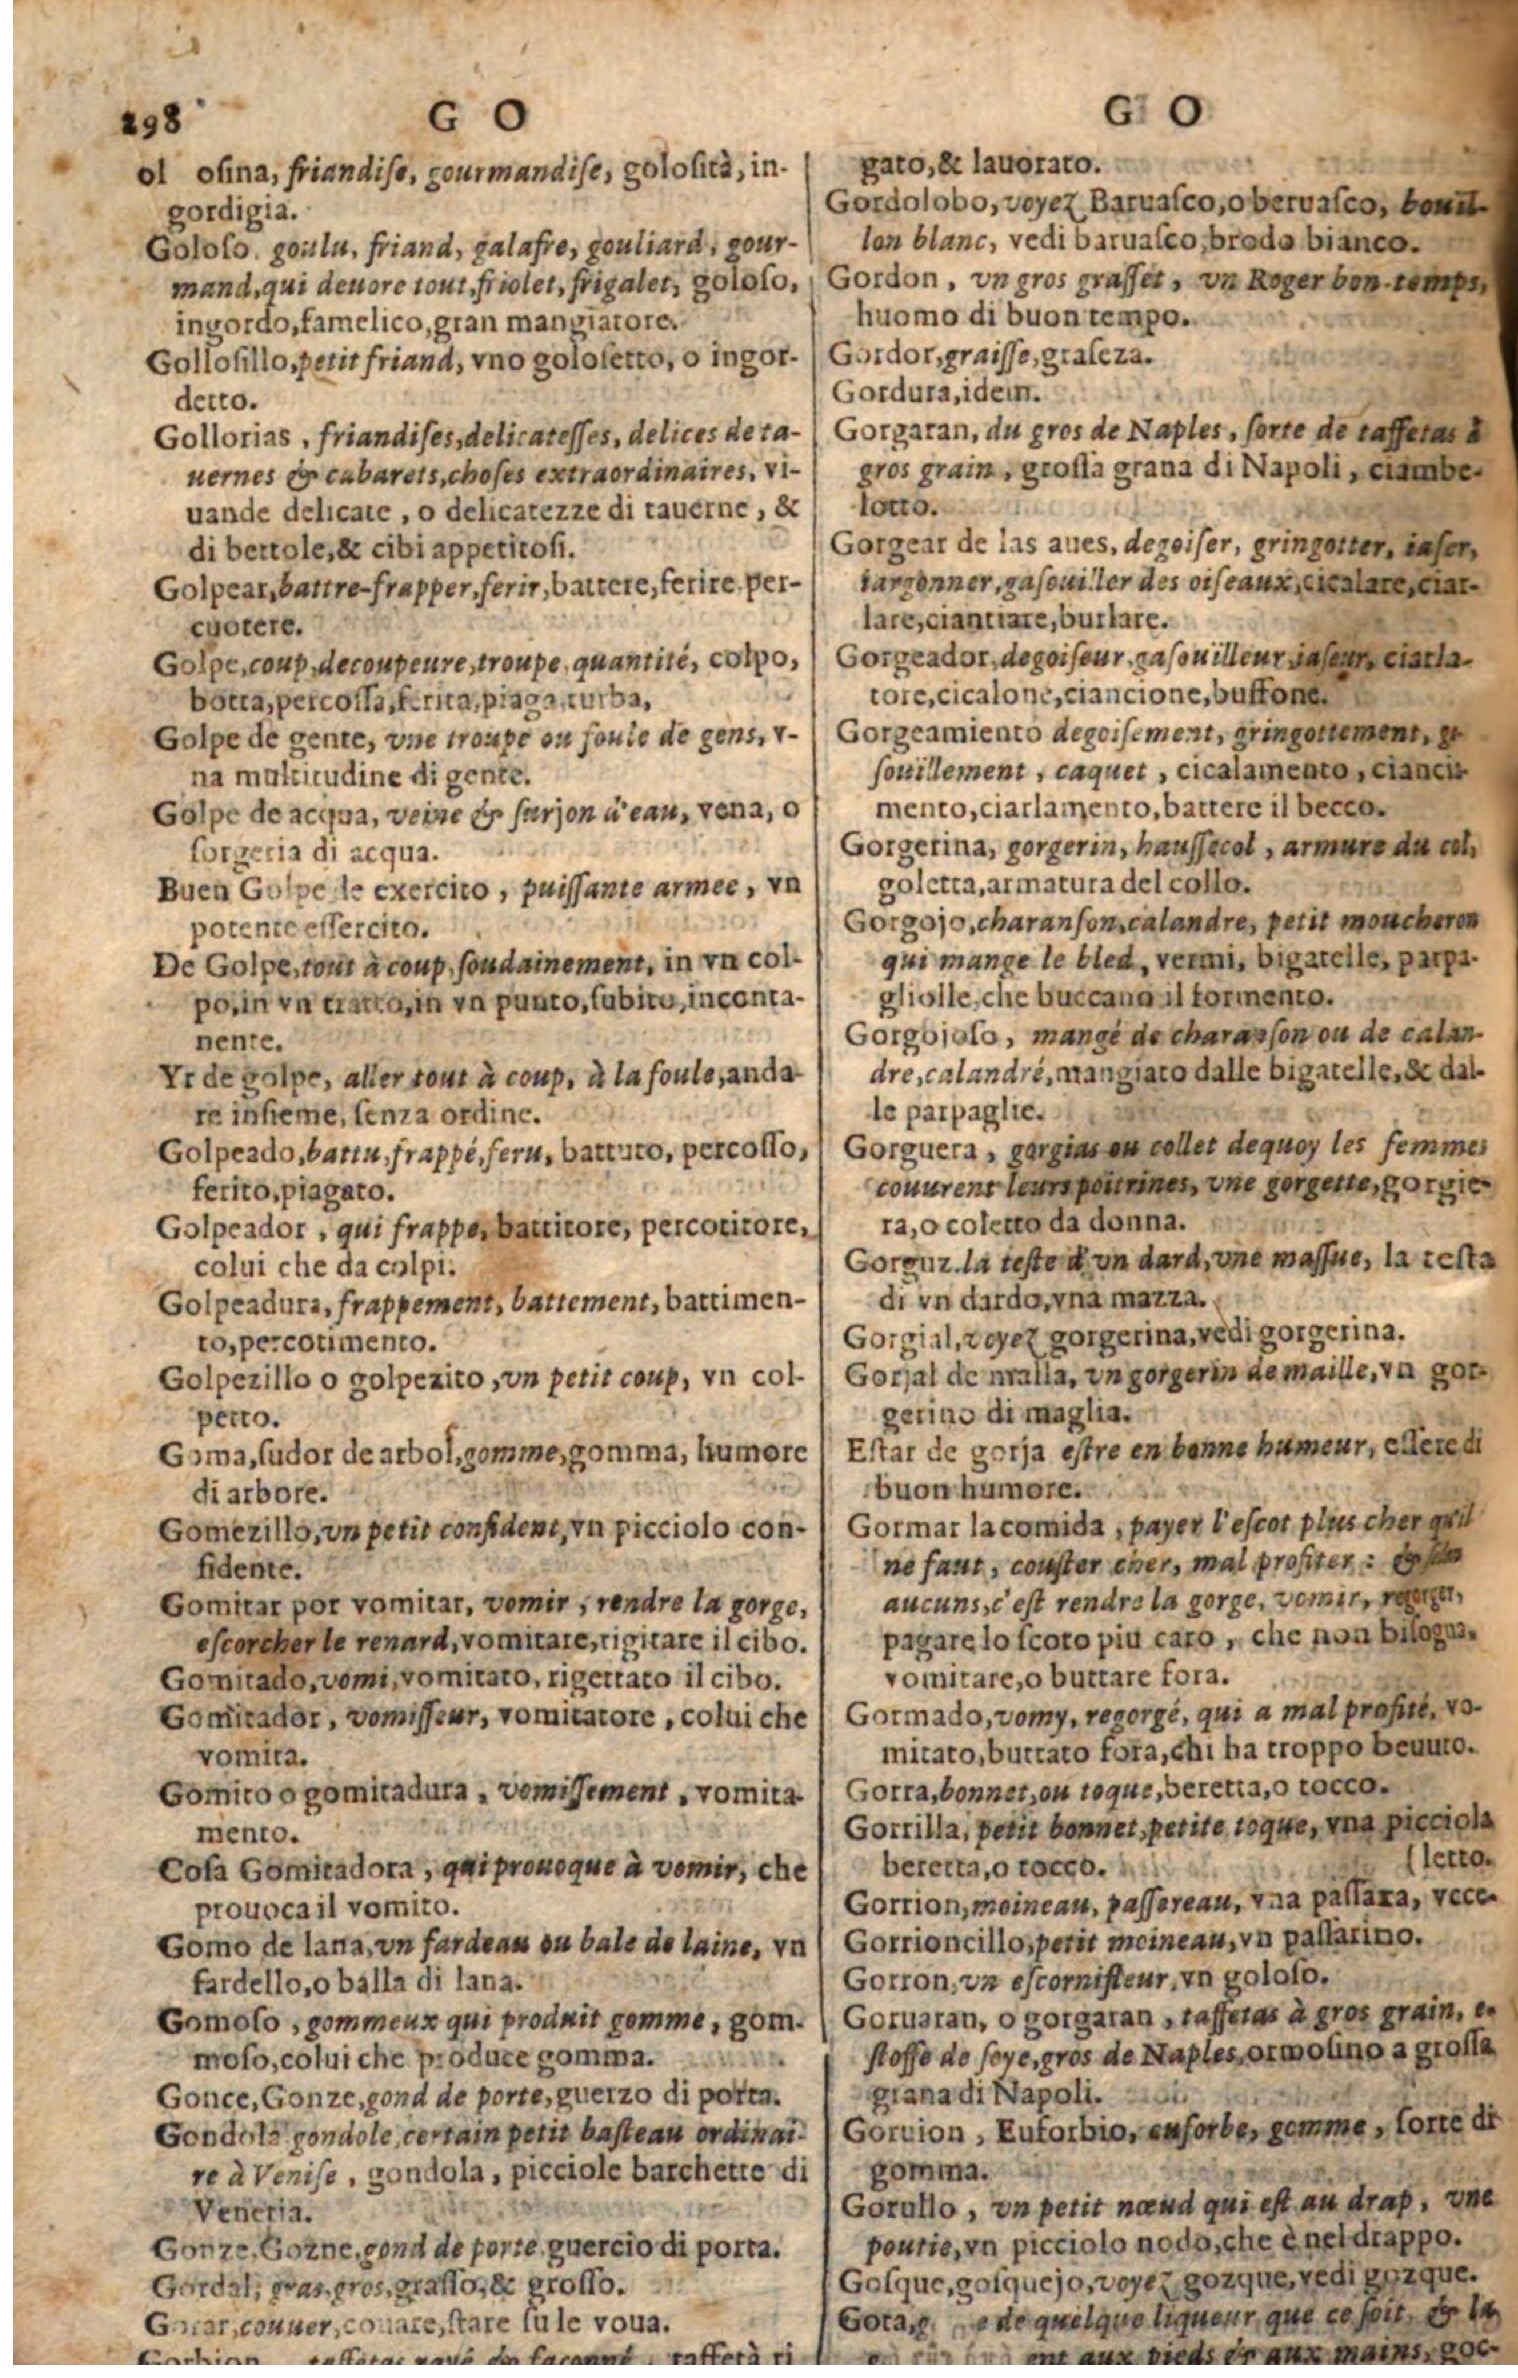 298
G O
ol osina, friandise, gourmandise, golosità, in-
gordigia.
Goloso. goulu, friand, galafre, gouliard, gour-
mand, qui deuore tout, friolet, frigalet, goloso,
ingordo, famelico, gran mangiatore.
Gollosillo, petit friand, vno golosetto, o ingor-
detto.
Gollorias, friandises, delicatesses, delices de ta-
uernes & cabarets, choses extraordinaires, vi-
uande delicate, o delicatezze di tauerne, &
di bettole, & cibi appetitosi.
Golpear, battre-frapper, ferir, battere, ferire, per-
cuotere.
Golpe, coup, decoupeure, troupe, quantité, colpo,
botta, percossa, ferita, piaga, turba,
Golpe de gente, vne troupe ou foule de gens, v-
na multitudine di gente.
Golpe de acqua, veine & surjon d'eau, vena, o
sorgeria di acqua.
Buen Golpe de exercito, puissante armee, vn
potente essercito.
De Golpe, tout à coup, soudainement, in vn col-
po, in vn tratto, in vn punto, subito, inconta-
nente.
Yr de golpe, aller tout à coup, à la foule, anda-
re insieme, senza ordine.
Golpeado, battu, frappé, feru, battuto, percosso,
ferito, piagato.
Golpeador, qui frappe, battitore, percotitore,
colui che da colpi.
Golpeadura, frappement, battement, battimen-
to, percotimento.
Golpezillo o golpezito, vn petit coup, vn col-
petto.
Goma, sudor de arbol, gomme, gomma, humore
di arbore.
Gomezillo, vn petit confident, vn picciolo con-
fidente.
Gomitar por vomitar, vomir, rendre la gorge,
escorcher le renard, vomitare, rigitare il cibo.
Gomitado, vomi, vomitato, rigettato il cibo.
Gomitador, vomisseur, vomitatore, colui che
vomita.
Gomito o gomitadura, vomissement, vomita-
mento.
Cosa Gomitadora, qui prouoque à vomir, che
prouoca il vomito.
Gomo de lana, vn fardeau ou bale de laine, vn
fardello, o balla di lana.
Gomoso, gommeux qui produit gomme, gom-
moso, colui che produce gomma.
Gonce, Gonze, gond de porte, guerzo di porta.
Gondola gondole, certain petit basteau ordinai-
re à Venise, gondola, picciole barchette di
Veneria.
Gonze, Gozne, gond de porte guercio di porta.
Gordal, gras, gros, grasso, & grosso.
Gorar, couuer, couare, stare su le voua.
Gorbion taffetas rayé & façonné, taffetà ri
G O
gato, & lauorato.
Gordolobo, voyez Baruasco, o beruasco, bouil-
lon blanc, vedi baruasco, brodo bianco.
Gordon, vn gros grasset, vn Roger bon-temps,
huomo di buon tempo.
Gordor, graisse, graseza.
Gordura, idem.
Gorgaran, du gros de Naples, sorte de taffetas à
gros grain, grossa grana di Napoli, ciambe-
lotto.
Gorgear de las aues, degoiser, gringotter, iaser,
iargonner, gasouiller des oiseaux, cicalare, ciar-
lare, ciantiare, burlare.
Gorgeador, degoiseur, gasoüilleur, iaseur, ciarla-
tore, cicalone, ciancione, buffone.
Gorgeamiento degoisement, gringottement, ga-
soüillement, caquet, cicalamento, ciancia-
mento, ciarlamento, battere il becco.
Gorgerina, gorgerin, haussecol, armure du col,
goletta, armatura del collo.
Gorgojo, charanson, calandre, petit moucheron
qui mange le bled, vermi, bigatelle, parpa-
gliolle, che buccano il formento.
Gorgojoso, mangé de charanson ou de calan-
dre, calandré, mangiato dalle bigatelle, & dal-
le parpaglie.
Gorguera, gorgias ou collet dequoy les femmes
couurent leurs poitrines, vne gorgette, gorgie-
ra, o coletto da donna.
Gorguz. la teste d'vn dard, vne massue, la testa
di vn dardo, vna mazza.
Gorgial, voyez gorgerina, vedi gorgerina.
Gorjal de malla, vn gorgerin de maille, vn gor-
gerino di maglia.
Estar de gorja estre en bonne humeur, essere di
buon humore.
Gormar la comida, payer l'escot plus cher qu'il
ne faut, couster cher, mal profiter: & selon
aucuns, c'est rendre la gorge, vomir, regorger,
pagare lo scoto piu caro, che non bisogna,
vomitare, o buttare fora.
Gormado, vomy, regorgé, qui a mal profité, vo-
mitato, buttato fora, chi ha troppo beuuto.
Gorra, bonnet, ou toque, beretta, o tocco.
Gorrilla, petit bonnet, petite toque, vna picciola
beretta, o tocco. (letto.
Gorrion, moineau, passereau, vna passara, vcce-
Gorrioncillo, petit moineau, vn passarino.
Gorron, vn escornifleur, vn goloso.
Goruaran, o gorgaran, taffetas à gros grain, e-
stoffe de soye, gros de Naples, ormosino a grossa
grana di Napoli.
Goruion, Euforbio, euforbe, gomme, sorte di
gomma.
Gorullo, vn petit nœud qui est au drap, vne
poutie, vn picciolo nodo, che è nel drappo.
Gosque, gosquejo, voyez gozque, vedi gozque.
Gota, g e de quelque liqueur que ce soit, & la
ent aux pieds & aux mains, goc-